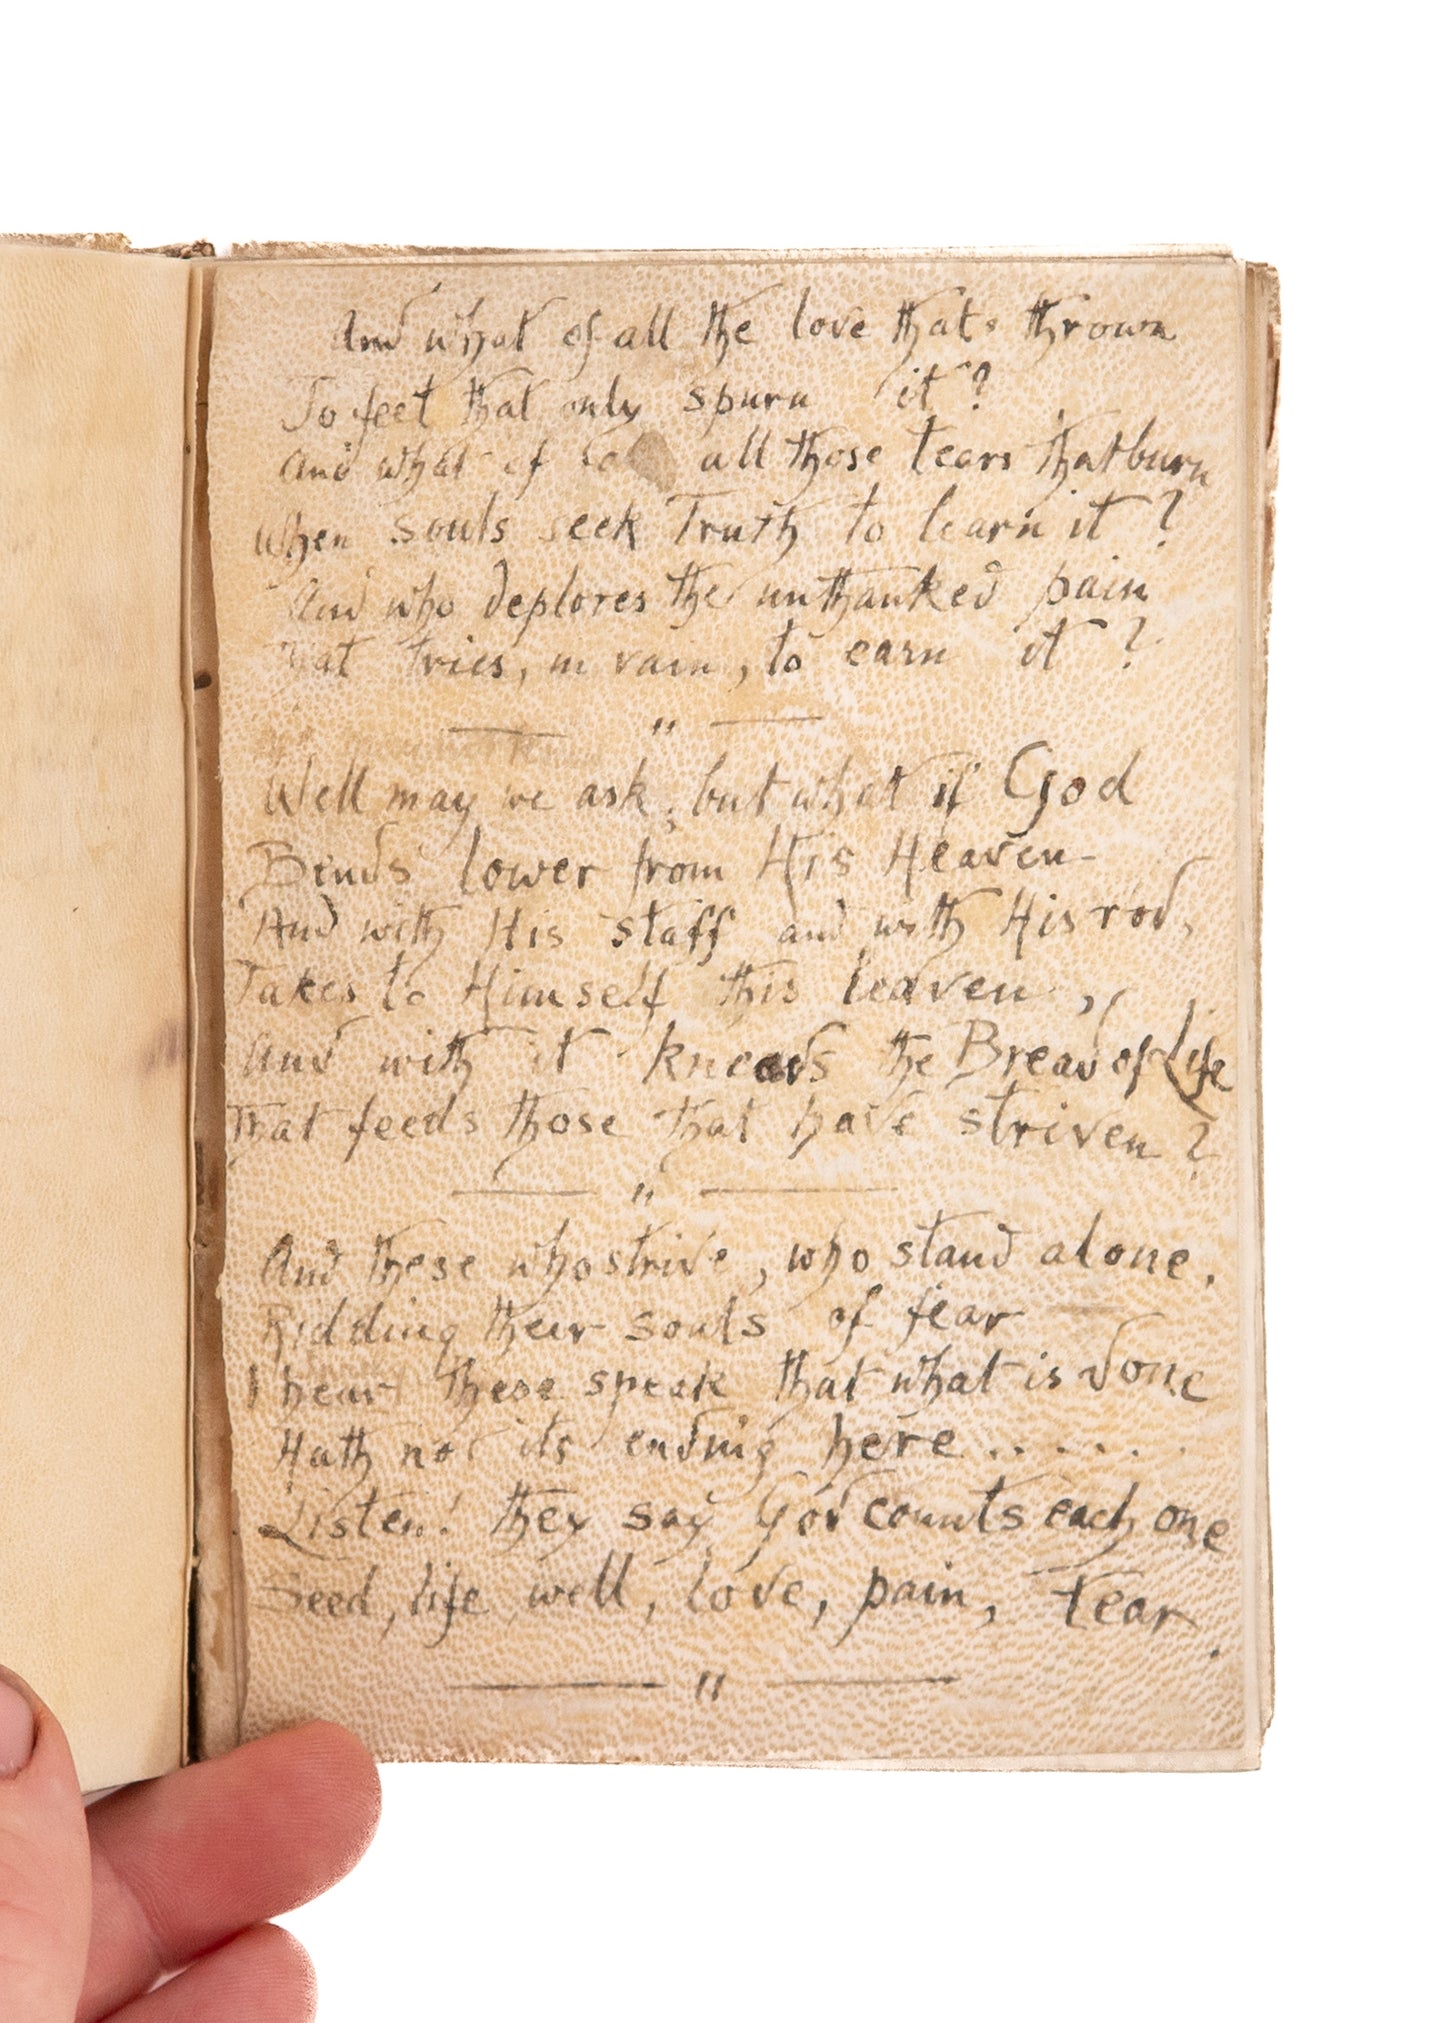 And what of all the love that's thrown
To feet that only spurn it?
And what of all those tears that burn
When souls seek Truth to learn it?
And who deplores the unthanked pain
That tries, in vain, to earn it?
— " —
Well may we ask, but what if God
Bends lower from His Heaven-
And with His staff and with His rod,
Takes to Himself this leaven,
And with it kneads the Bread of Life
That feeds those that have striven?
— " —
And these who strive, who stand alone.
Ridding their souls of fear —
I hear these speak that what is done
Hath not its ending here......
Listen! they say God counts each one
Seed, life well, love, pain, tear.
— " —